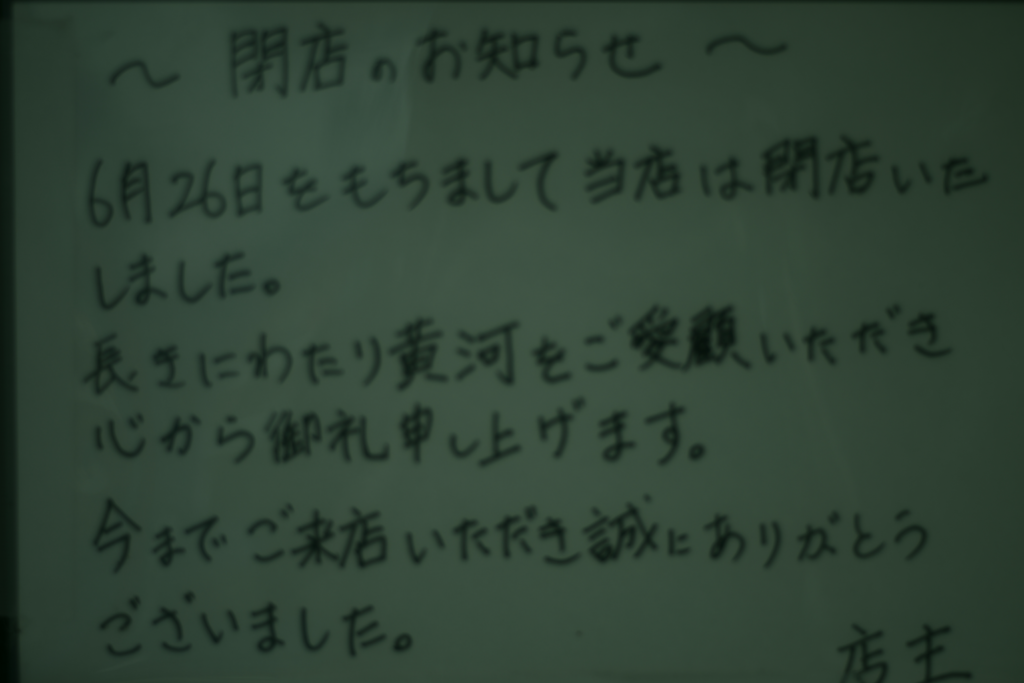 ～ 閉店のお知らせ ～
6月26日をもちまして当店は閉店いた
しました。
長きにわたり黄河をご愛顧いただき
心から御礼申し上げます。
今までご来店いただき誠にありがとう
ございました。
店主